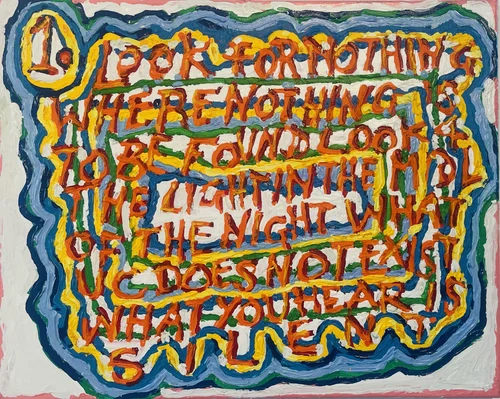 1. LOOK FOR NOTHING
WHERE NOTHING IS
TO BE FOUND LOOK 4
THE LIGHT IN THE MIDL
OF THE NIGHT WHAT
U C DOES NOT EXIST
WHAT YOU HEAR IS
SILENT